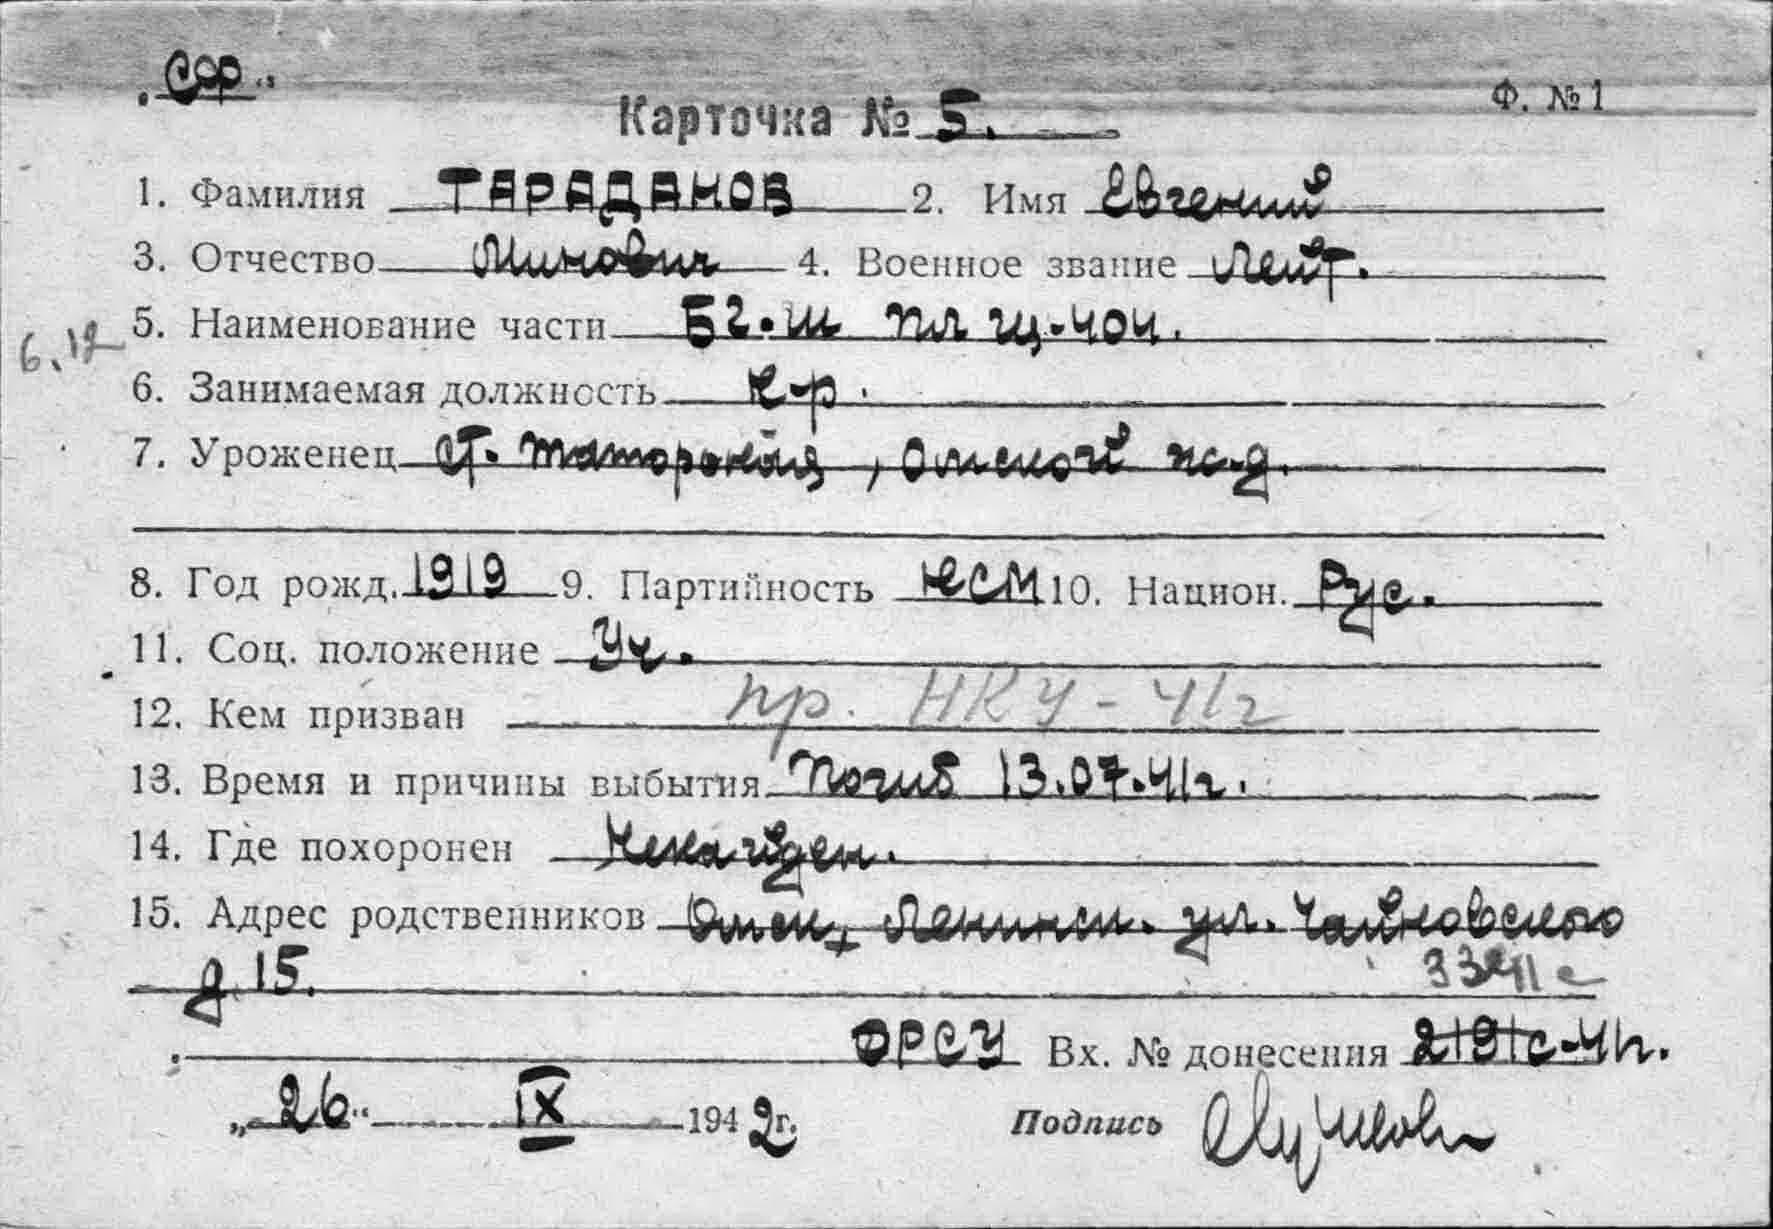 Ф. № 1
Карточка № 5.
1. Фамилия ТАРАДАНОВ 2. Имя Евгений
3. Отчество Минович 4. Военное звание Лейт.
6.12 5. Наименование части Бг. ш пл Щ-404.
6. Занимаемая должность к-р.
7. Уроженец ст. Татарская, Омской ж.д.
8. Год рожд. 1919 9. Партийность ЛКСМ 10. Национ. Рус.
11. Соц. положение Уч.
12. Кем призван пр. НКУ-41г
13. Время и причины выбытия Погиб 13.07.41г.
14. Где похоронен
15. Адрес родственников Омск, Ленинск. ул. Чайковского
д. 15.
ОРСУ Вх. № донесения 2191с-41г.
„ 26 " IX 1942г. Подпись